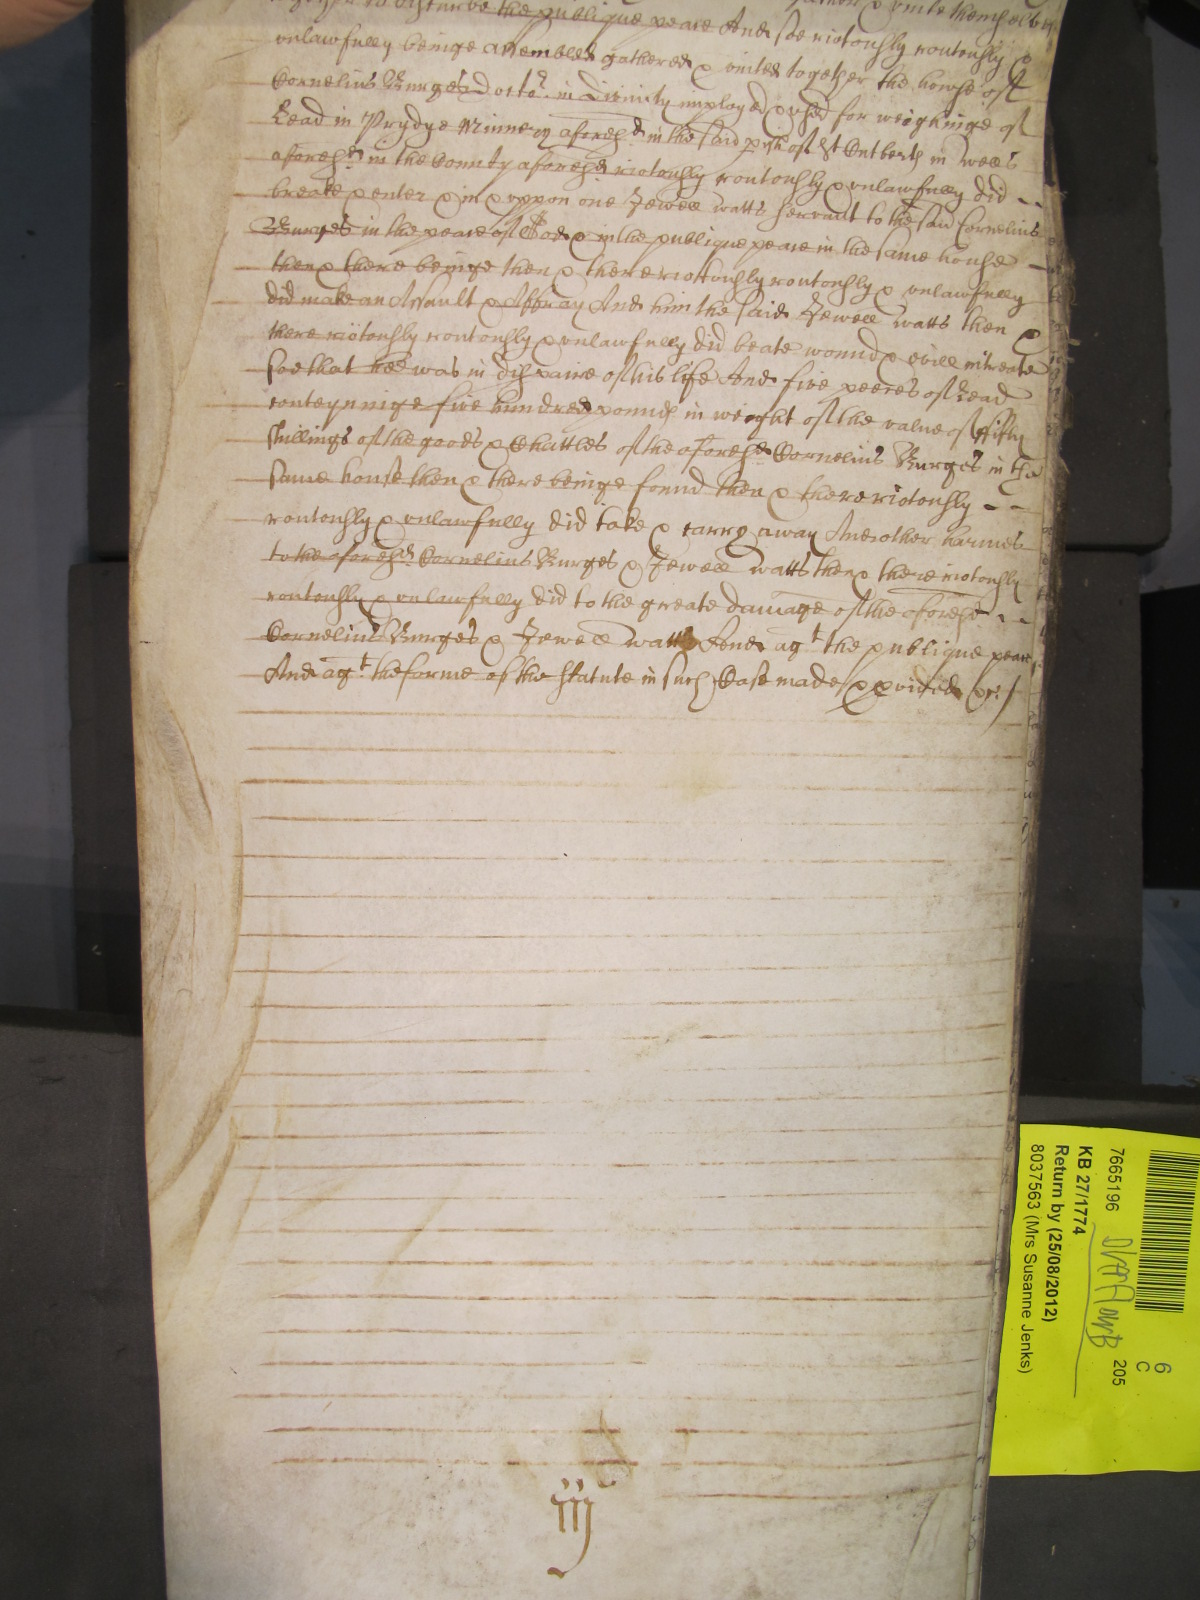 to disturbe the publique peace And soe riotously routously &
unlawfully beinge assembled gathered & united together the howse of
Cornelius Burges Doctor in Divinity imployed & used for weighinge of
Lead in Prydye Minnery aforesd in the said pish of St Cutberth in Wells
aforesd in the County aforesd riotously routously & unlawfully did
breake & enter & in & uppon one Jewell Watts servant to the said Cornelius
Burges in the peace of God & in the publique peace in the same house
then & there beinge then & there riottously routously & unlawfully
did make an Assault & Affray And him the said Jewell Watts then &
there riotously routously & unlawfully did beate wound & evill intreate
soe that hee was in dispaire of his life And five peeces of Lead
conteyninge five hundred pounds in weight of the value of fifty
shillings of the goods & Chattles of the aforesd Cornelius Burges in the
same house then & there beinge found then & there riotously
routously & unlawfully did take & carry away And other harmes
to the aforesd Cornelius Burges & Jewell Watts then & there riotously
routously & unlawfully did to the greate damage of the aforesd
Cornelius Burges & Jewell Watts And agt the publique peace
And agt the forme of the statute in such Case made & pvided &c/
iij
7665196
KB 27/1774
Return by (25/08/2012)
8037563 (Mrs Susanne Jenks)
6
C
205